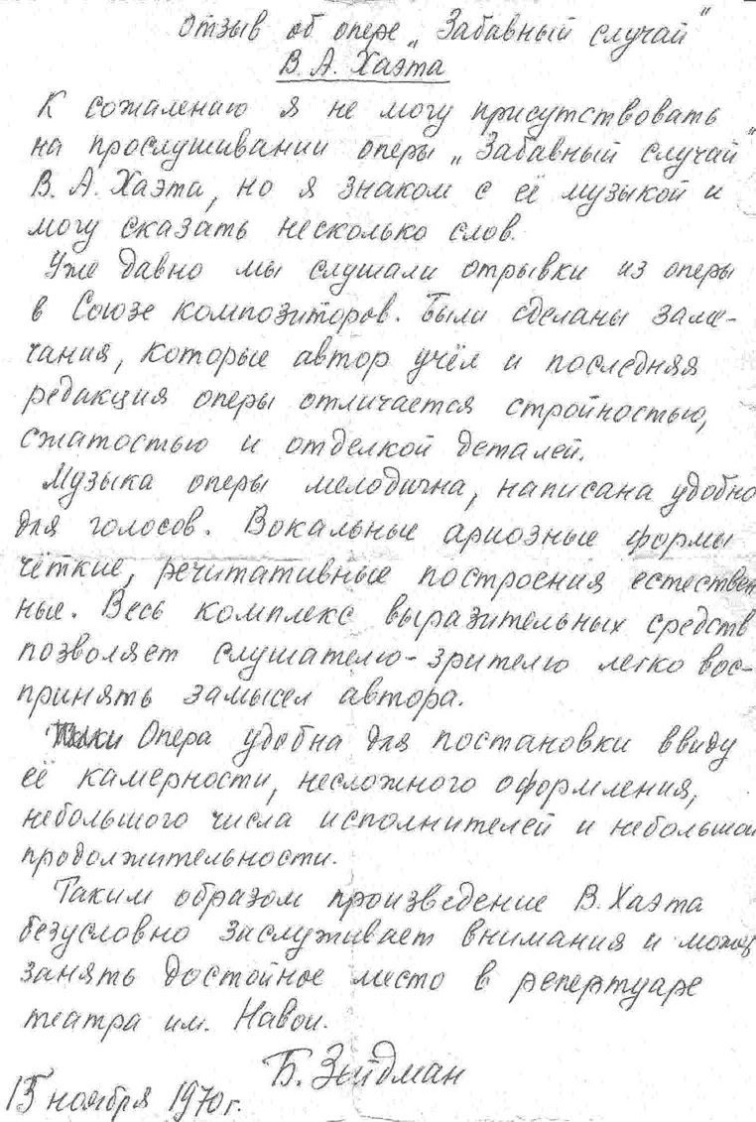 Отзыв об опере „Забавный случай"
В. А. Хаэта
К сожалению я не могу присутствовать
на прослушивании оперы „Забавный случай"
В. А. Хаэта, но я знаком с её музыкой и
могу сказать несколько слов.
Уже давно мы слушали отрывки из оперы
в Союзе композиторов. Были сделаны заме-
чания, которые автор учёл и последняя
редакция оперы отличается стройностью,
сжатостью и отделкой деталей.
Музыка оперы мелодична, написана удобно
для голосов. Вокальные ариозные формы
чёткие, речитативные построения естествен
ные. Весь комплекс выразительных средств
позволяет слушателю-зрителю легко вос-
принять замысел автора.
Опера удобна для постановки ввиду
её камерности, несложного оформления,
небольшого числа исполнителей и небольшой
продолжительности.
Таким образом произведение В. Хаэта
безусловно заслуживает внимания и может
занять достойное место в репертуаре
театра им. Навои.
Б. Зейдман
15 ноября 1970 г.